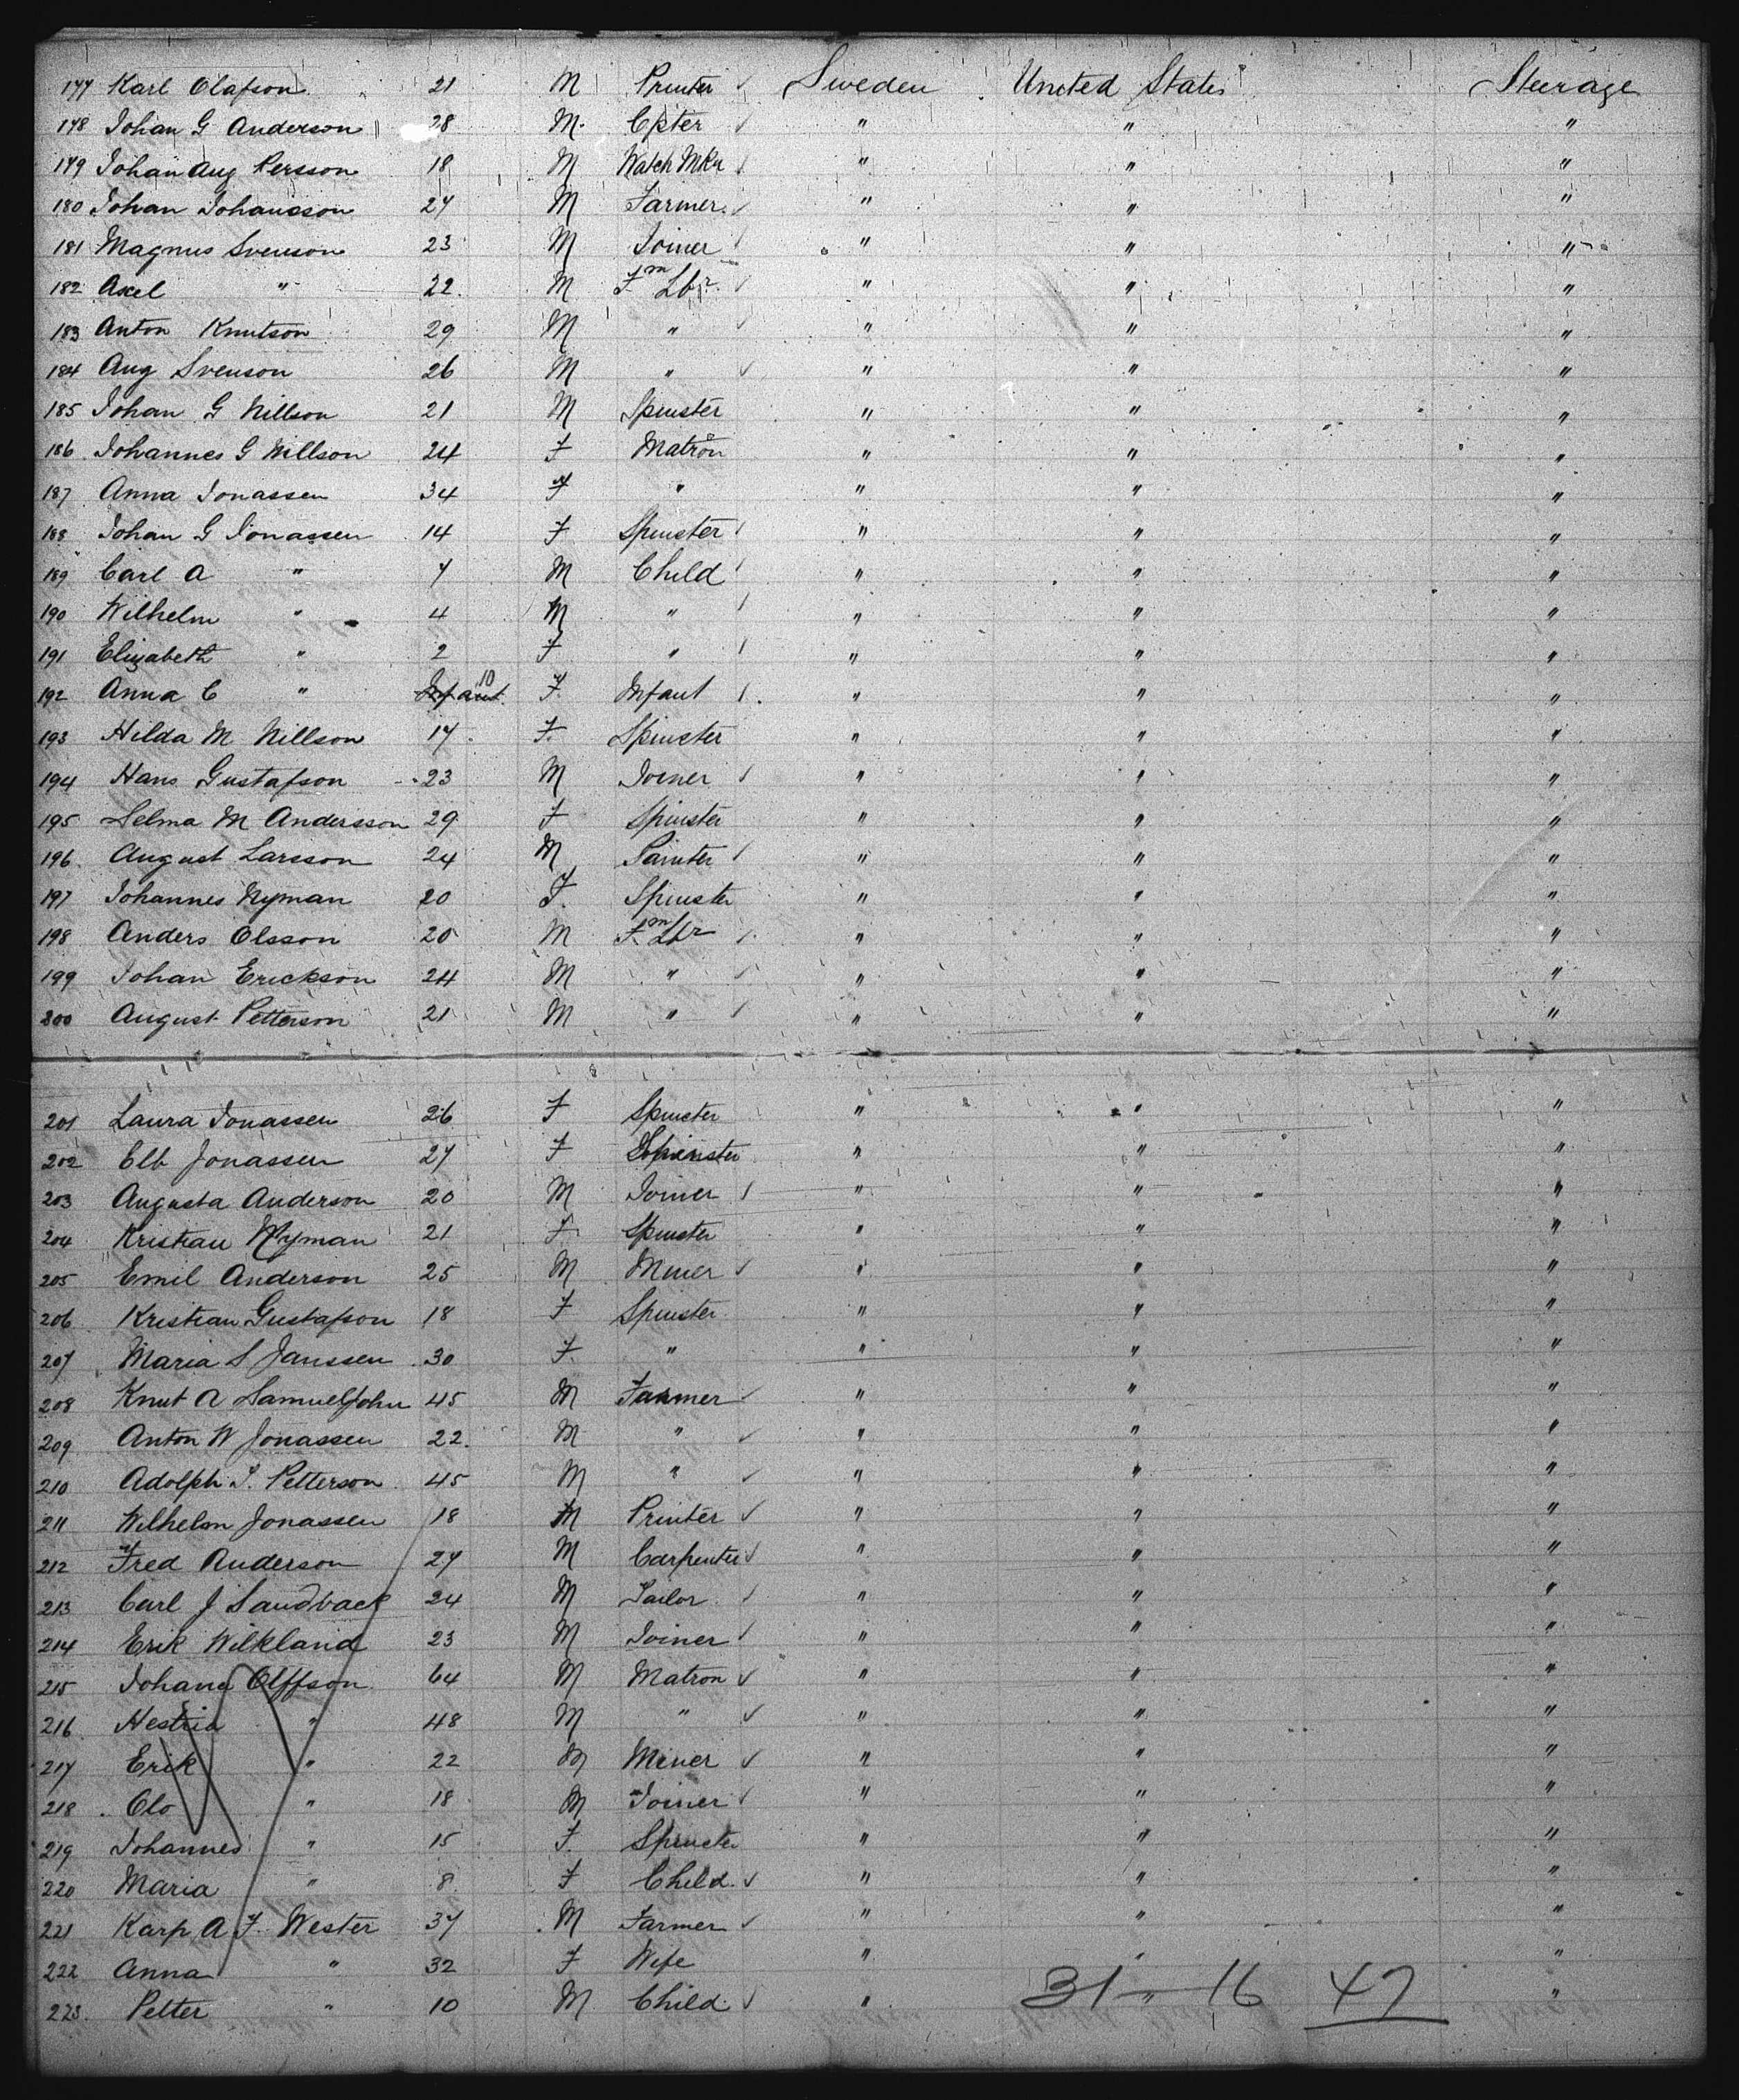 177 Karl Olafson 21 M Printer ✓ Sweden United States Steerage
178 Johan G Anderson 28 M. Cpter ✓ " " "
179 Johan Aug Persson 18 M Watch Mkr ✓ " " "
180 Johan Johanson 27 M Farmer ✓ " " "
181 Magnus Svenson 23 M Joiner ✓ " " "
182 Axel " 22 M Fm Lbr ✓ " " "
183 Anton Knutson 29 M " ✓ " " "
184 Aug Svenson 26 M " ✓ " " "
185 Johan G Nillson 21 M Spinster " " "
186 Johannes G Nillson 24 F Matron " " "
187 Anna Jonassen 34 F " " " "
188 Johan G Jonassen 14 F Spinster ✓ " " "
189 Carl A " 7 M Child ✓ " " "
190 Wilhelm " 4 M " ✓ " " "
191 Elizabeth " 2 F " ✓ " " "
192 Anna C " Infant 10 F. Infant ✓ " " "
193 Hilda M Nillson 17 F. Spinster " " "
194 Hans Gustafson 23 M Joiner ✓ " " "
195 Selma M Andersson 29 F Spinster " " "
196 August Larsson 24 M Painter ✓ " " "
197 Johannes Nyman 20 F. Spinster " " "
198 Anders Olsson 20 M Fm Lbr ✓ " " "
199 Johan Erickson 24 M " ✓ " " "
200 August Petterson 21 M " ✓ " " "
201 Laura Jonassen 26 F Spinster " " "
202 Elb Jonassen 27 F Spinster " " "
203 Augusta Anderson 20 M Joiner ✓ " " "
204 Kristian Nyman 21 F Spinster " " "
205 Emil Anderson 25 M Miner ✓ " " "
206 Kristian Gustafson 18 F Spinster " " "
207 Maria S Janssen 30 F. " " " "
208 Knut A Samueljohn 45 M Farmer ✓ " " "
209 Anton W Jonassen 22. M " ✓ " " "
210 Adolph J. Petterson 45 M " ✓ " " "
211 Wilhelm Jonassen 18 M Printer ✓ " " "
212 Fred Anderson 27 M Carpenter ✓ " " "
213 Carl J Sandback 24 M Tailor ✓ " " "
214 Erik Wilkland 23 M Joiner ✓ " " "
215 Johana Olffson 64 M Matron ✓ " " "
216 Hestria " 48 M " ✓ " " "
217 Erik " 22 M Miner ✓ " " "
218 Olo " 18 M Joiner ✓ " " "
219 Johannes " 15 F. Spinster " " "
220 Maria " 8 F Child ✓ " " "
221 Karp A F. Wester 37 M Farmer ✓ " " "
222 Anna " 32 F Wife " " "
223. Petter " 10 M Child ✓ " " "
31 — 16 47